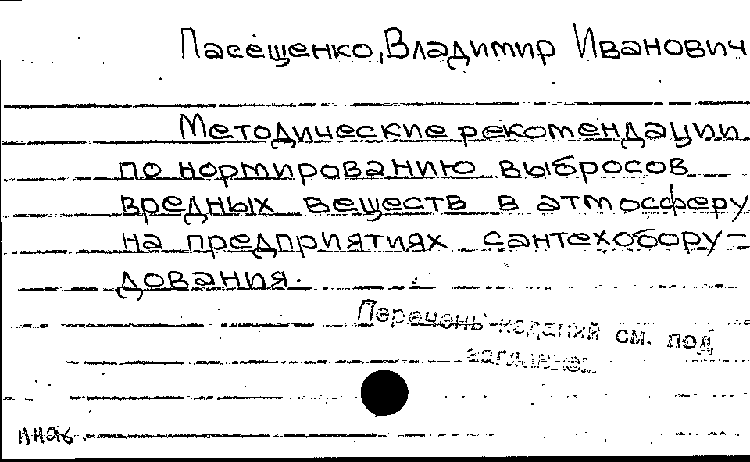 Пасещенко, Владимир Иванович
Методические рекомендации
по нормированию выбросов
вредных веществ в атмосферу
на предприятиях сантехобору-
дования.
Перечень изданий см. под
заглавием